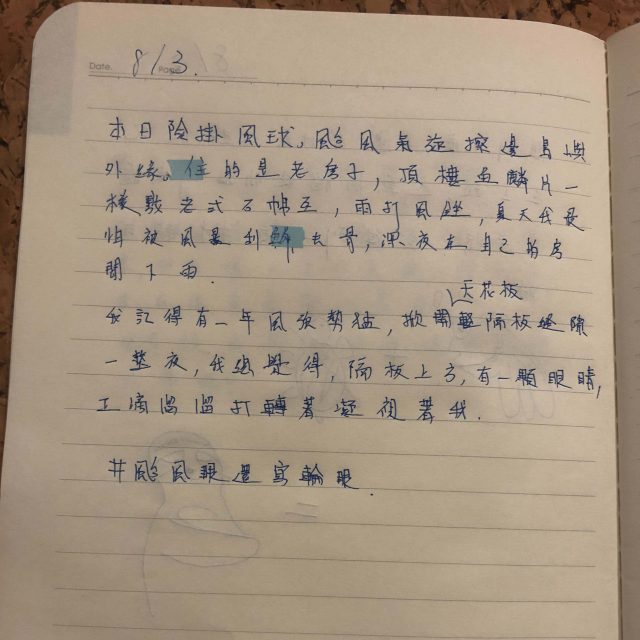 8/3.
Date.
Page
本日險掛風球。颱風氣旋擦邊島嶼
外緣。住的是老房子，頂樓魚鱗片一
樣數老式石棉瓦，雨打風，夏天我最
怕被風暴刮去骨，深夜在自己的房
間下雨.
天花板
我記得有一年風強勢猛，掀開輕隔板縫隙
一整夜，我總覺得，隔板上方，有一顆眼睛，
滴溜溜打轉著凝視著我.
#颱風眼寫輪眼.